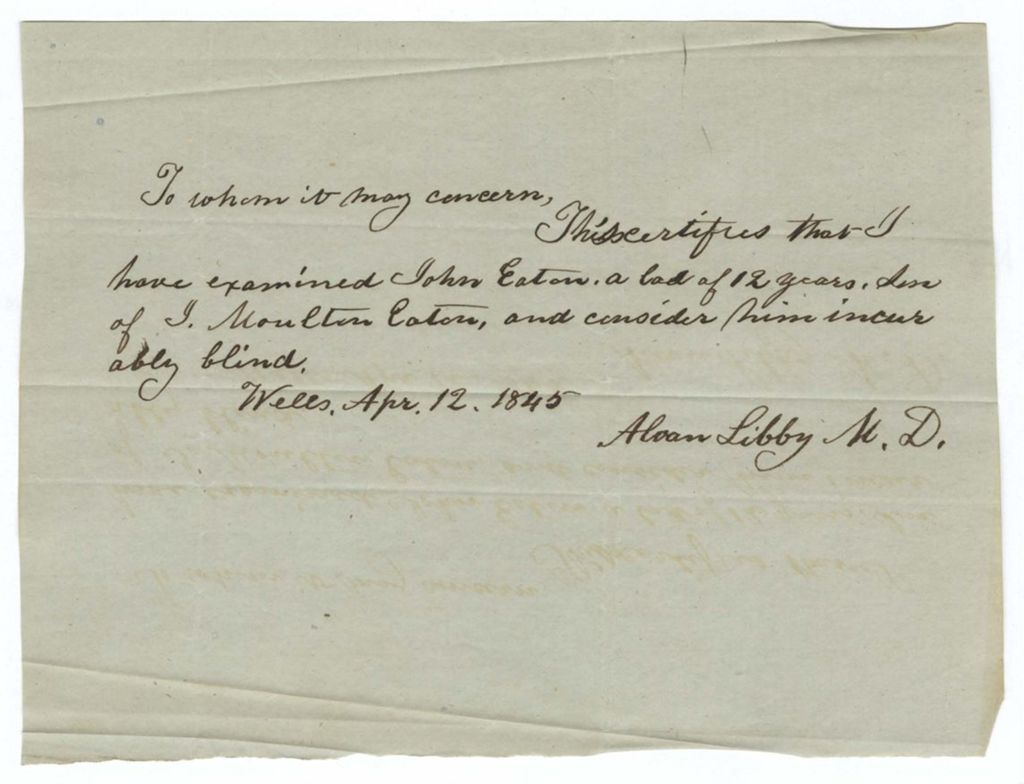 To whom it may concern,
This certifies that I
have examined John Eaton. a lad of 12 years. Son
of J. Moulton Eaton, and consider him incur
ably blind.
Wells. Apr. 12. 1845
Alvan Libby M. D.